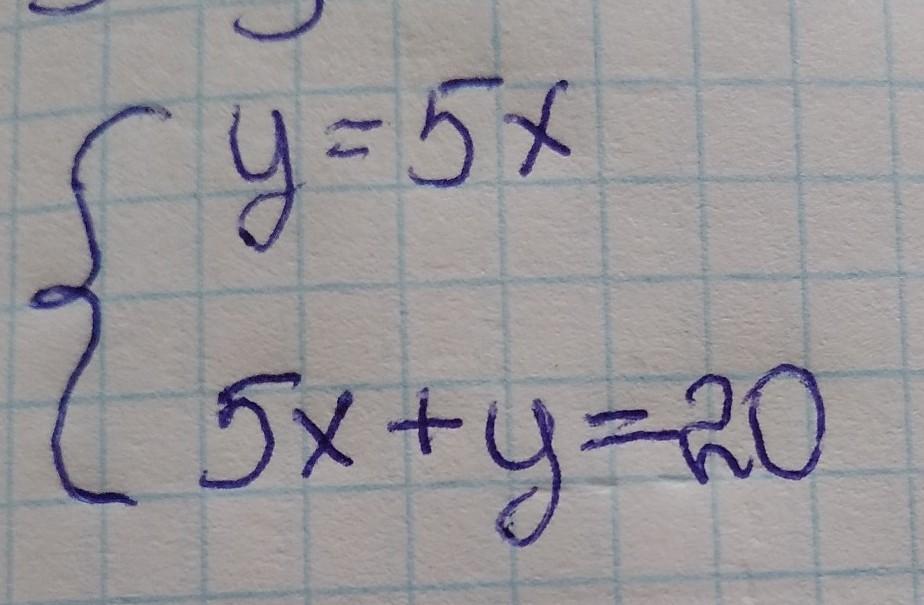 y = 5x
5x + y = -20